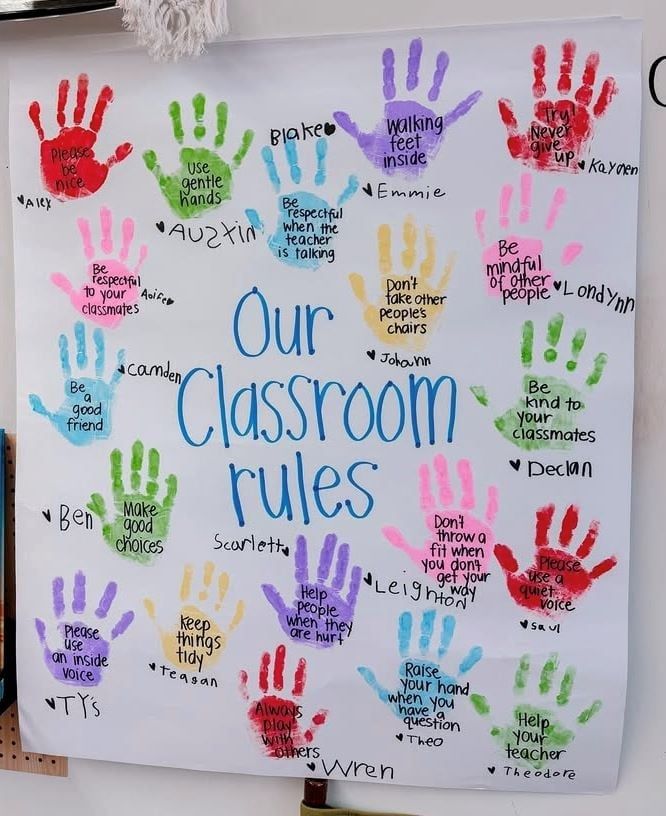 Please
be
nice
Alex
Use
gentle
hands
Austin
Blake
Be
respectful
when the
teacher
is talking
Walking
feet
inside
Emmie
Try!
Never
give
up
Be
respectful
to your
classmates
Aoife
Don't
take other
people's
chairs
Johann
Be
mindful
of other
people
Londynn
Our
Classroom
rules
Be
a
good
friend
Camden
Be
kind to
your
classmates
Declan
Ben
Make
good
choices
Scarlett
Help
people
when they
are hurt
Don't
throw a
fit when
you don't
get your
way
Leighton
Please
use a
quiet
voice
Saul
Please
use
an inside
voice
TY's
Keep
things
tidy
Teagan
Always
play
with
others
Wren
Raise
your hand
when you
have a
question
Theo
Help
your
teacher
Theodore